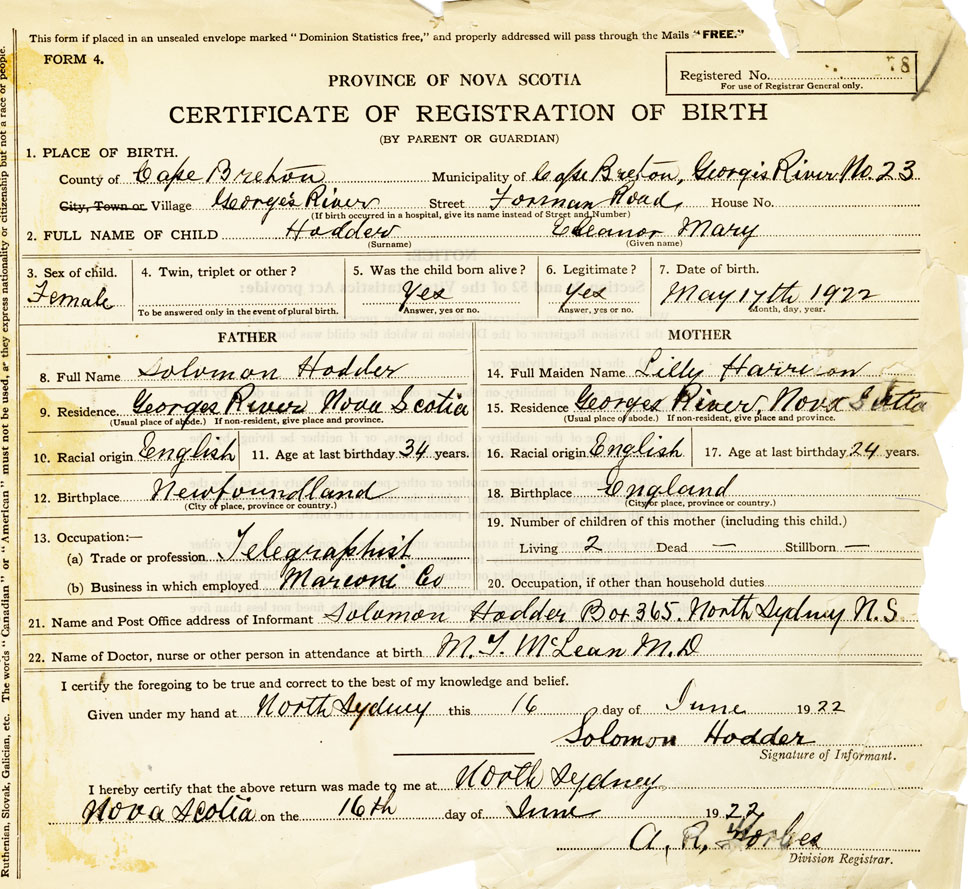 This form if placed in an unsealed envelope marked "Dominion Statistics free," and properly addressed will pass through the Mails "FREE."
FORM 4.
PROVINCE OF NOVA SCOTIA
Registered No. 78
For use of Registrar General only.
CERTIFICATE OF REGISTRATION OF BIRTH
(BY PARENT OR GUARDIAN)
1. PLACE OF BIRTH.
County of Cape Breton Municipality of Cape Breton, Georgis River No. 23
City, Town or Village Georges River Street Forman Road, House No.
(If birth occurred in a hospital, give its name instead of Street and Number)
2. FULL NAME OF CHILD Hodder Eleanor Mary
(Surname) (Given name)
3. Sex of child. 4. Twin, triplet or other? 5. Was the child born alive? 6. Legitimate? 7. Date of birth.
Female Yes Yes May 17th 1922
To be answered only in the event of plural birth. Answer, yes or no. Answer, yes or no. Month, day, year.
FATHER MOTHER
8. Full Name Solomon Hodder 14. Full Maiden Name Lilly Harrison
9. Residence Georges River Nova Scotia 15. Residence Georges River, Nova Scotia
(Usual place of abode.) If non-resident, give place and province. (Usual place of abode.) If non-resident, give place and province.
10. Racial origin English 11. Age at last birthday 34 years. 16. Racial origin English 17. Age at last birthday 24 years.
12. Birthplace Newfoundland 18. Birthplace England
(City or place, province or country.) (City or place, province or country.)
13. Occupation:— 19. Number of children of this mother (including this child.)
(a) Trade or profession Telegraphist Living 2 Dead — Stillborn —
(b) Business in which employed Marconi Co 20. Occupation, if other than household duties
21. Name and Post Office address of Informant Solomon Hodder Box 365. North Sydney N.S
22. Name of Doctor, nurse or other person in attendance at birth M. T. McLean M.D
I certify the foregoing to be true and correct to the best of my knowledge and belief.
Given under my hand at North Sydney this 16 day of June 1922
Solomon Hodder
Signature of Informant.
I hereby certify that the above return was made to me at North Sydney
Nova Scotia on the 16th day of June 1922
A. R. Forbes
Division Registrar.
Ruthenian, Slovak, Galician, etc. The words "Canadian" or "American" must not be used, as they express nationality or citizenship but not a race or people.